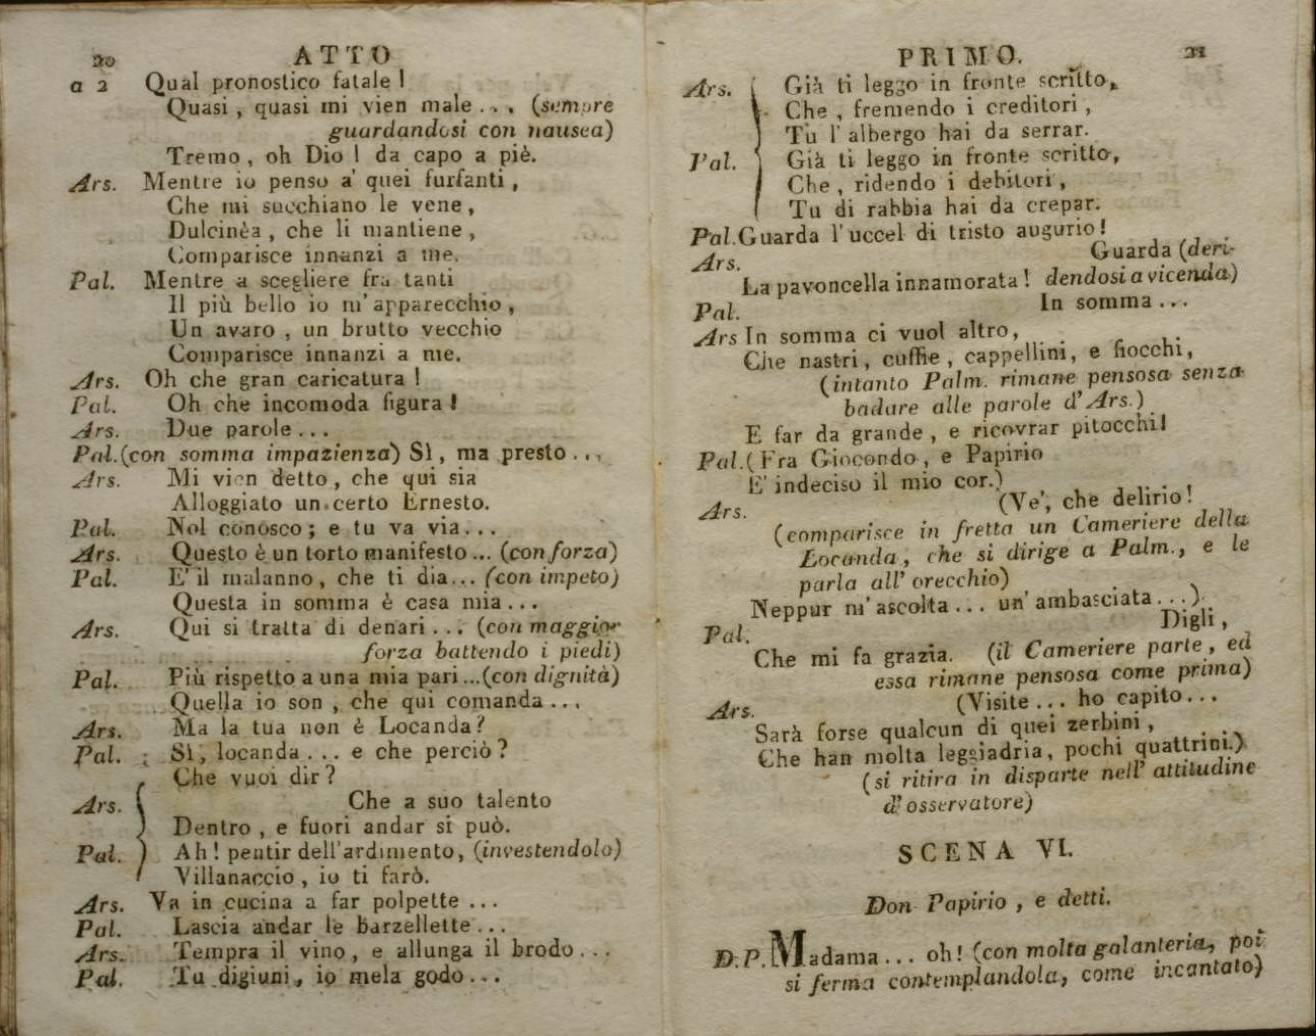 20 ATTO
a 2 Qual pronostico fatale !
Quasi, quasi mi vien male... (sempre
guardandosi con nausea)
Tremo, oh Dio ! da capo a piè.
Ars. Mentre io penso a' quei furfanti,
Che mi succhiano le vene,
Dulcinèa, che li mantiene,
Comparisce innanzi a me.
Pal. Mentre a scegliere fra tanti
Il più bello io m'apparecchio,
Un avaro, un brutto vecchio
Comparisce innanzi a me.
Ars. Oh che gran caricatura !
Pal. Oh che incomoda figura !
Ars. Due parole...
Pal. (con somma impazienza) Sì, ma presto...
Ars. Mi vien detto, che qui sia
Alloggiato un certo Ernesto.
Pal. Nol conosco; e tu va via...
Ars. Questo è un torto manifesto... (con forza)
Pal. E' il malanno, che ti dia... (con impeto)
Questa in somma è casa mia...
Ars. Qui si tratta di denari... (con maggior
forza battendo i piedi)
Pal. Più rispetto a una mia pari...(con dignità)
Quella io son, che qui comanda...
Ars. Ma la tua non è Locanda?
Pal. Sì, locanda... e che perciò?
Che vuoi dir?
Ars. Che a suo talento
Dentro, e fuori andar si può.
Pal. Ah! pentir dell'ardimento, (investendolo)
Villanaccio, io ti farò.
Ars. Va in cucina a far polpette...
Pal. Lascia andar le barzellette...
Ars. Tempra il vino, e allunga il brodo...
Pal. Tu digiuni, io mela godo...
PRIMO. 21
Ars. Già ti leggo in fronte scritto,
Che, fremendo i creditori,
Tu l'albergo hai da serrar.
Pal. Già ti leggo in fronte scritto,
Che, ridendo i debitori,
Tu di rabbia hai da crepar.
Pal. Guarda l'uccel di tristo augurio!
Ars. Guarda (deri-
La pavoncella innamorata! dendosi a vicenda)
Pal. In somma...
Ars In somma ci vuol altro,
Che nastri, cuffie, cappellini, e fiocchi,
(intanto Palm. rimane pensosa senza
badare alle parole d'Ars.)
E far da grande, e ricovrar pitocchi!
Pal. (Fra Giocondo, e Papirio
E' indeciso il mio cor.)
Ars. (Ve', che delirio!
(comparisce in fretta un Cameriere della
Locanda, che si dirige a Palm., e le
parla all'orecchio)
Neppur m'ascolta... un'ambasciata...)
Pal. Digli,
Che mi fa grazia. (il Cameriere parte, ed
essa rimane pensosa come prima)
Ars. (Visite... ho capito...
Sarà forse qualcun di quei zerbini,
Che han molta leggiadria, pochi quattrini.)
(si ritira in disparte nell'attitudine
d'osservatore)
SCENA VI.
Don Papirio, e detti.
D.P. Madama... oh! (con molta galanteria, poi
si ferma contemplandola, come incantato)